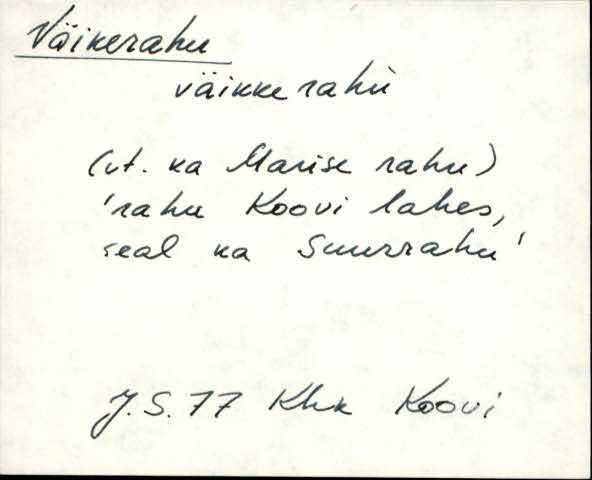 Väikerahu
väikke rahù
(vt. ka Marise rahu)
'rahu Koovi lahes,
seal ka Suurrahu'
J.S. 77 Khk Koovi